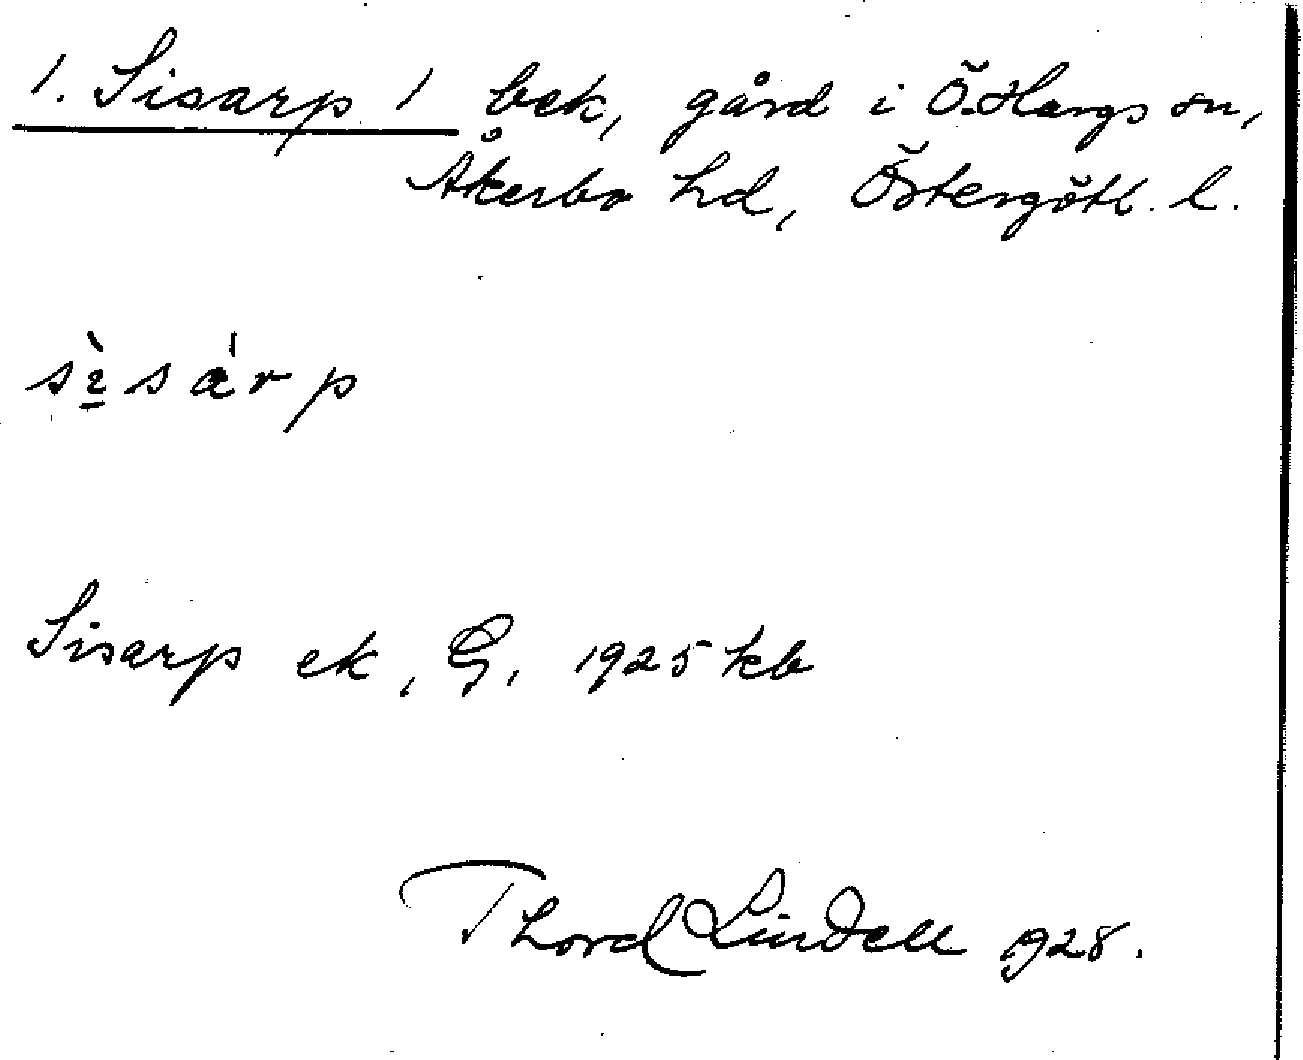 1. Sisarp 1 bek, gård i Ö. Hargs sn,
Åkerbo hd, Östergötl. l.
sìsárp
Sisarp ek, G, 1925 kb
Thord Lindell 1928.